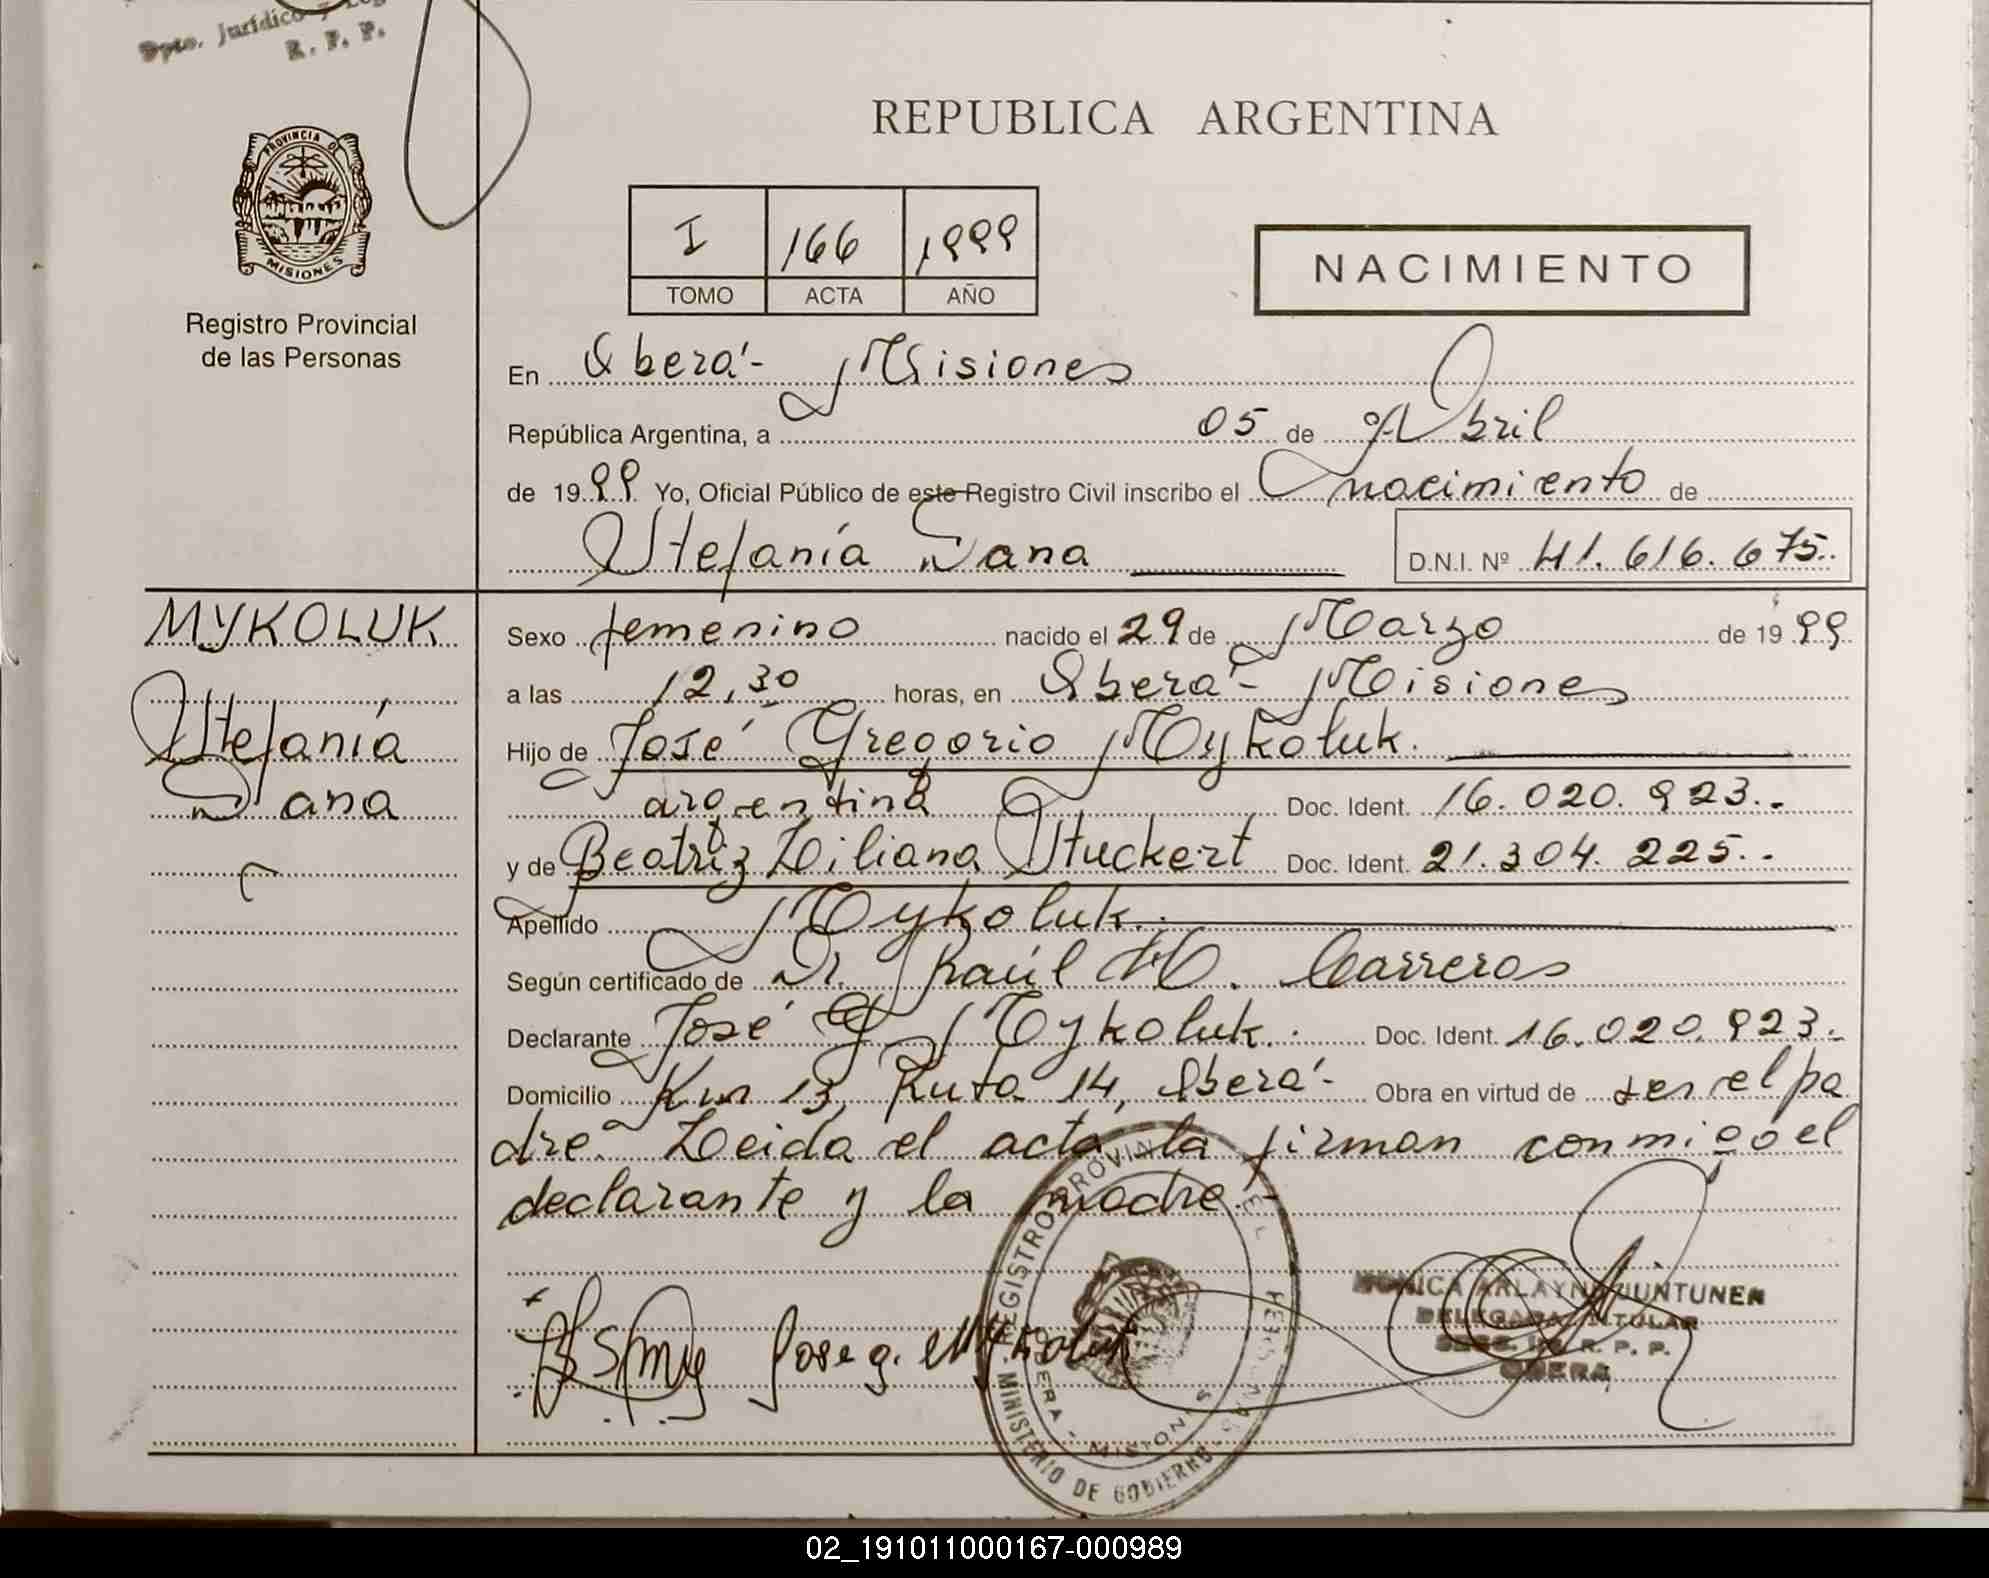 Dpto. Jurídico y
R. P. P.
PROVINCIA DE
MISIONES
Registro Provincial
de las Personas
REPUBLICA ARGENTINA
I 166 1999
TOMO ACTA AÑO
NACIMIENTO
En Oberá - Misiones
República Argentina, a 05 de Abril
de 1999 Yo, Oficial Público de este Registro Civil inscribo el nacimiento de
Stefanía Dana D.N.I. Nº 41.616.675.
MYKOLUK
Stefanía
Dana
Sexo femenino nacido el 29 de Marzo de 1999
a las 12,30 horas, en Oberá - Misiones
Hijo de José Gregorio Mykoluk.
argentina Doc. Ident. 16.020.923.-
y de Beatriz Liliana Stuckert Doc. Ident. 21.304.225.-
Apellido Mykoluk.
Según certificado de Dr. Raúl H. Carreros
Declarante José G. Mykoluk. Doc. Ident. 16.020.923.-
Domicilio Km 13, Ruta 14, Oberá - Obra en virtud de ser el pa
dre. Leida el acta la firman conmigo el
declarante y la madre.-
Jose g. Mykoluk
REGISTRO PROVINCIAL DE LAS PERSONAS
MINISTERIO DE GOBIERNO
OBERA - MISIONES
MONICA ARLAYNE JUNTUNEN
DELEGADA TITULAR
R. P. P.
OBERA
02_191011000167-000989